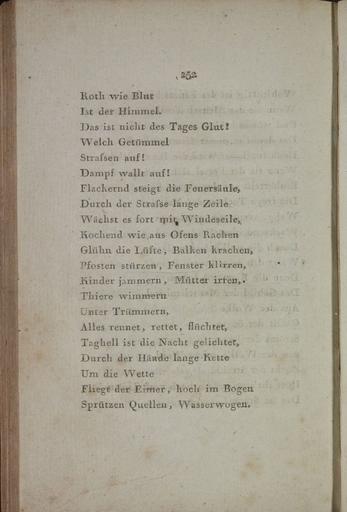 252
Roth wie Blut
Ist der Himmel.
Das ist nicht des Tages Glut!
Welch Getümmel
Straſsen auf!
Dampf wallt auf!
Flackernd steigt die Feuersäule,
Durch der Straſse lange Zeile
Wächst es fort mit Windeseile,
Kochend wie aus Ofens Rachen
Glühn die Lüfte, Balken krachen,
Pfosten stürzen, Fenster klirren,
Kinder jammern, Mütter irren,
Thiere wimmern
Unter Trümmern,
Alles rennet, rettet, flüchtet,
Taghell ist die Nacht gelichtet,
Durch der Hände lange Kette
Um die Wette
Fliegt der Eimer, hoch im Bogen
Sprützen Quellen, Wasserwogen.